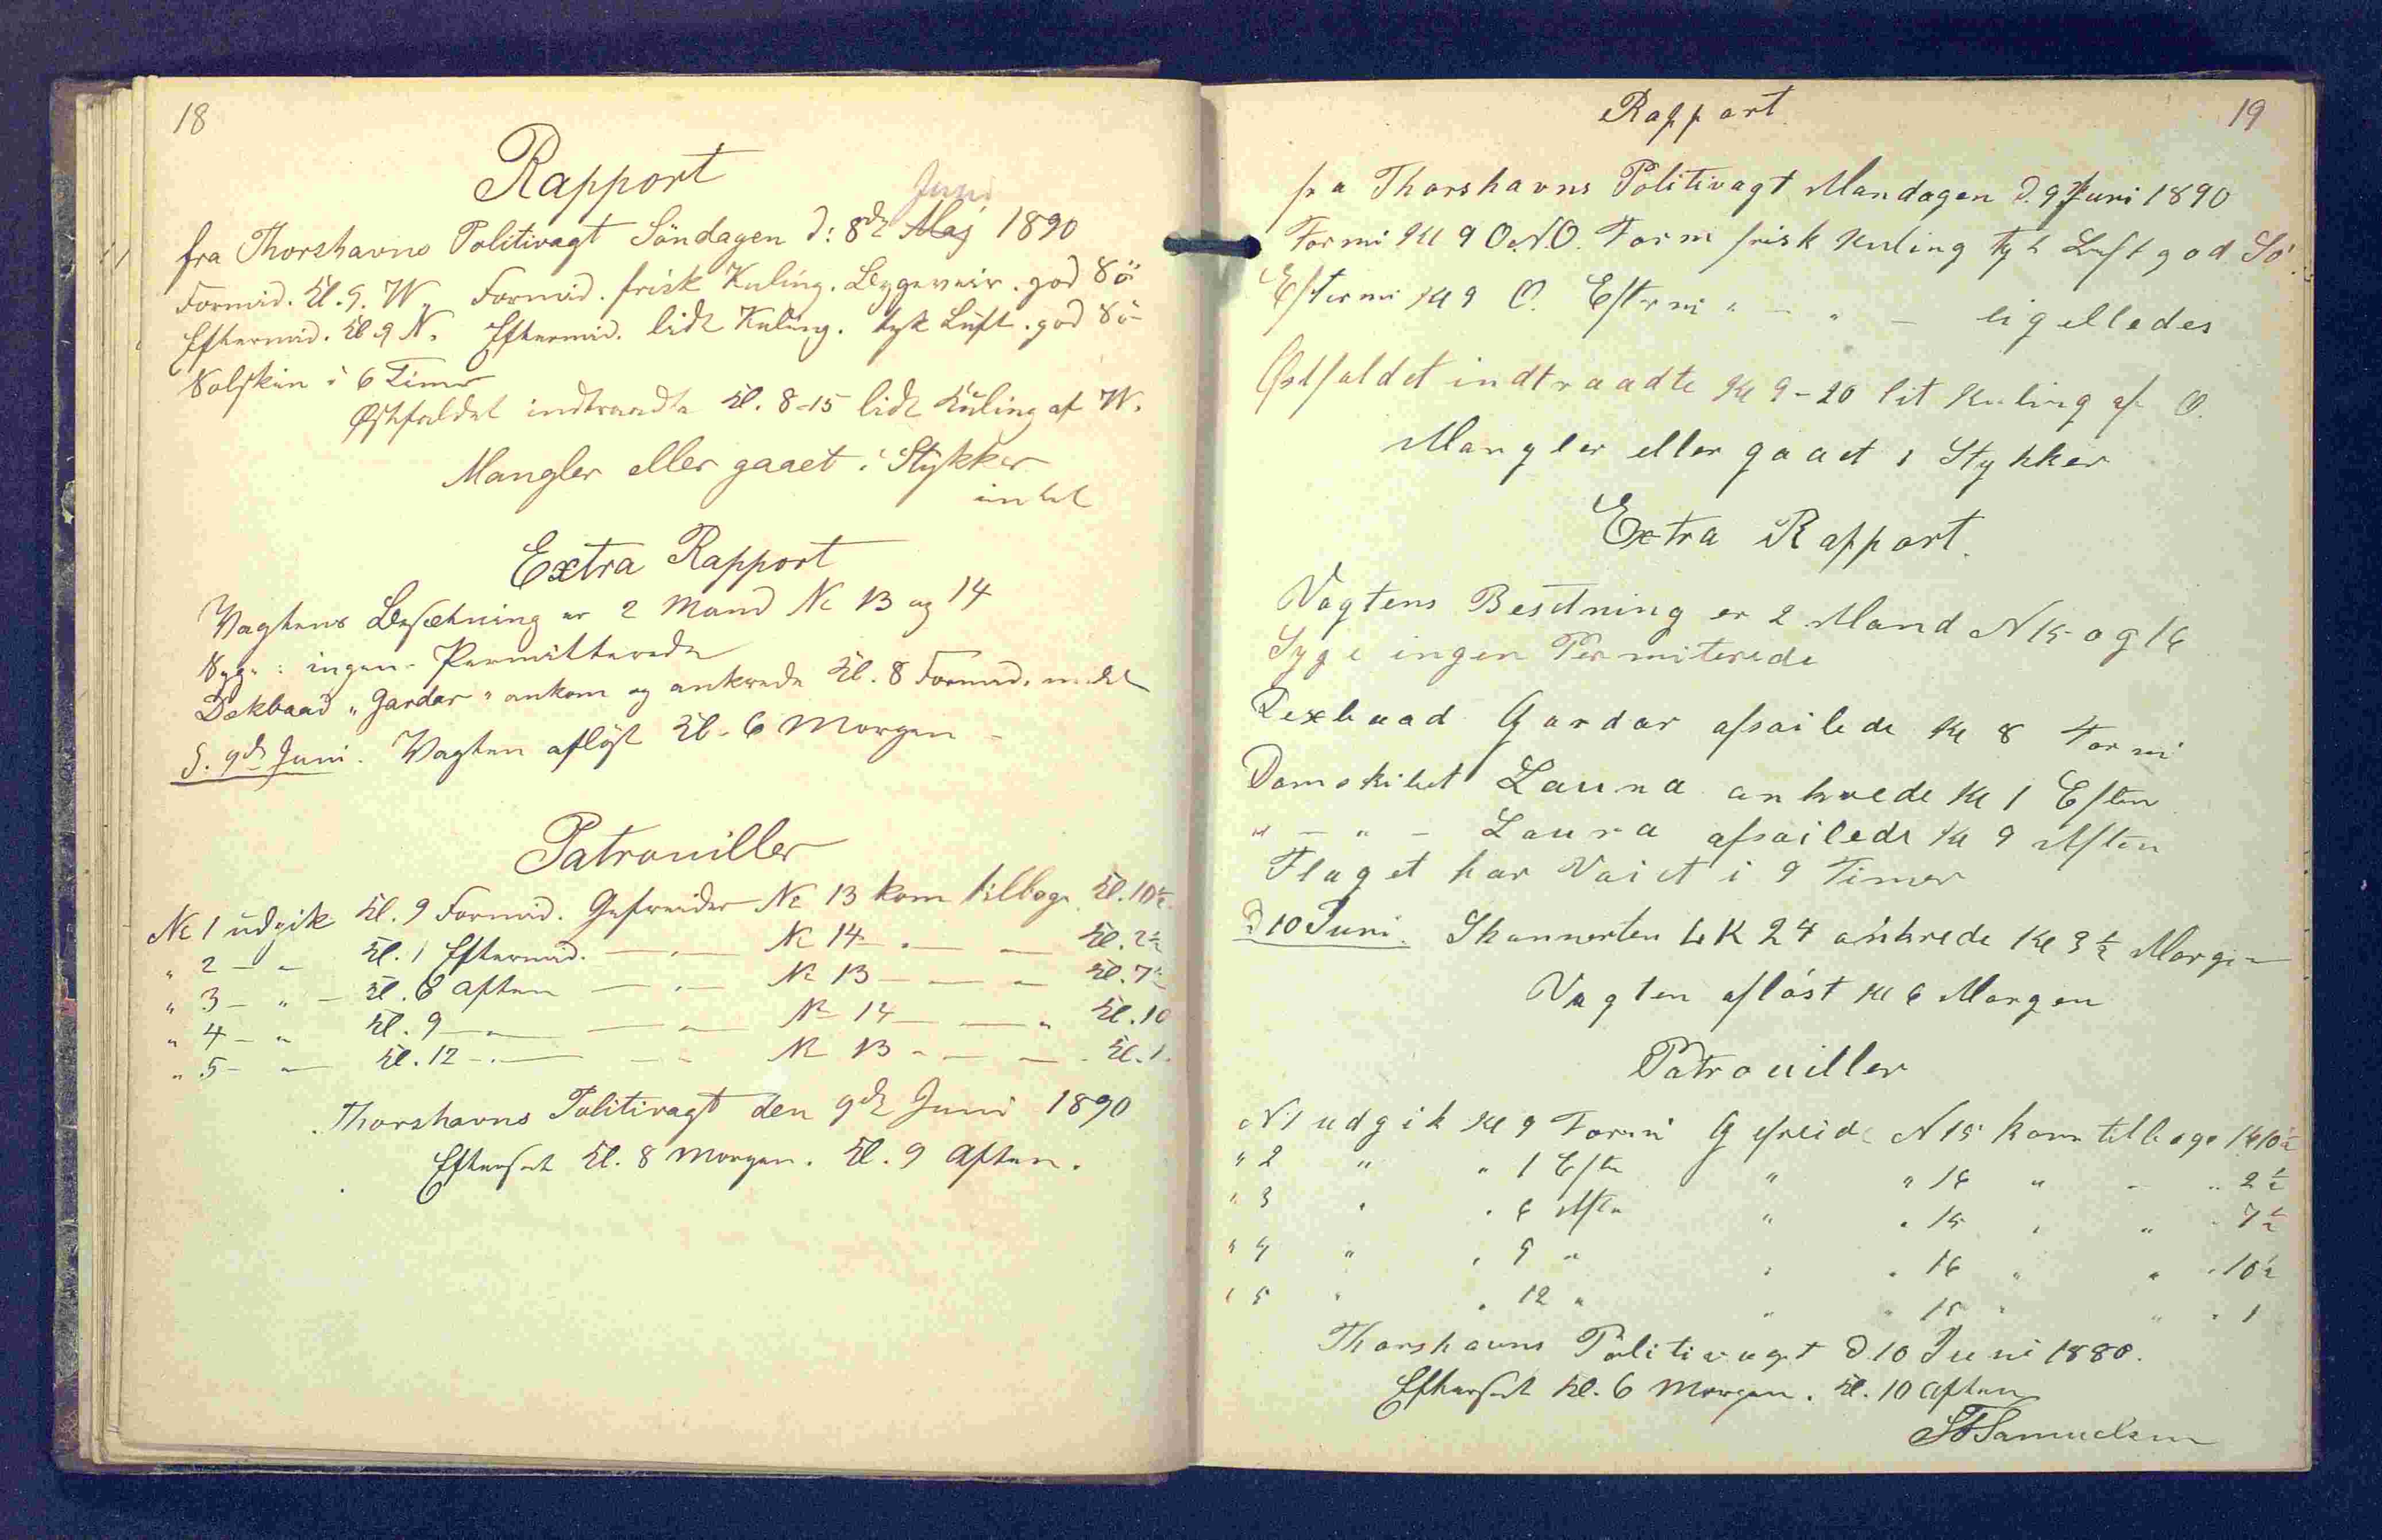 18
Rapport
Juni
fra Thorshavns Politivagt Söndagen d: 8de Maj 1890
Formid. Kl. 9. W. Formid. frisk Kuling. Bygeveir. god Sö
Eftermid. Kl 9 N. Eftermid. lidt Kuling. tyk Luft. god Sö
Solskin i 6 Timer
Østfaldet indtraadte Kl. 8-15 lidt Kuling af W.
Mangler eller gaaet i Stykker
intet
Extra Rapport
Vagtens Besætning er 2 Mand No 13 og 14
Syge: ingen - Permitterede
Dekbaad "Gardar" ankom og ankrede Kl. 8 Formid.
d. 9de Juni. Vagten aflöst Kl. 6 Morgen -
Patrouiller
No 1 udgik Kl. 9 Formid. Gefreider No 13 kom tilbage Kl. 10½
" 2 - " Kl. 1 Eftermid. — " — No 14 - " — — Kl. 2½
" 3 - " - Kl. 6 Aften — " — No 13 — — " Kl. 7½
" 4 - " Kl. 9 — " — — " — No 14 — — " Kl. 10
" 5 - " — Kl. 12 - " — — " No 13 - " — — - Kl. 1.
Thorshavns Politivagt den 9de Juni 1890
Efterset Kl. 8 Morgen. Kl. 9 Aften.
19
Rapport
fra Thorshavns Politivagt Mandagen d. 9 Juni 1890
Formi Kl 9 O.N.O. Form frisk Kuling tyk Luft god Sö.
Eftermi Kl 9 O. Eftermi " — " — ligelledes
Østfaldet indtraadte Kl 9-20 lit Kuling af O.
Mangler eller gaaet i Stykker
Extra Rapport.
Vagtens Besetning er 2 Mand N 15 og 16
Syge ingen Permiterede
Dexbaad Gardar afsailede Kl 8 Formi
Damskibet Laura ankrede Kl 1 Eften
" — " — Laura afsailede Kl 9 Aften
Flaget har Vaiet i 9 Timer
d 10 Juni. Skonnerten LK 24 ankrede Kl 3½ Morgen
Vagten aflöst Kl 6 Morgen
Patrouiller
N 1 udgik Kl 9 Formi Gefreide N 15 kom tilbage Kl 10½
" 2 " " 1 Eftn " " 16 " - " 2½
" 3 " " 6 Aftn " " 15 " " " 7½
" 4 " " 9 " " " 16 " " " 10½
" 5 " " 12 " " " 15 " " " 1
Thorshavns Politivagt d 10 Juni 1880.
Efterset Kl. 6 Morgen. Kl. 10 Aften
Samuelsen